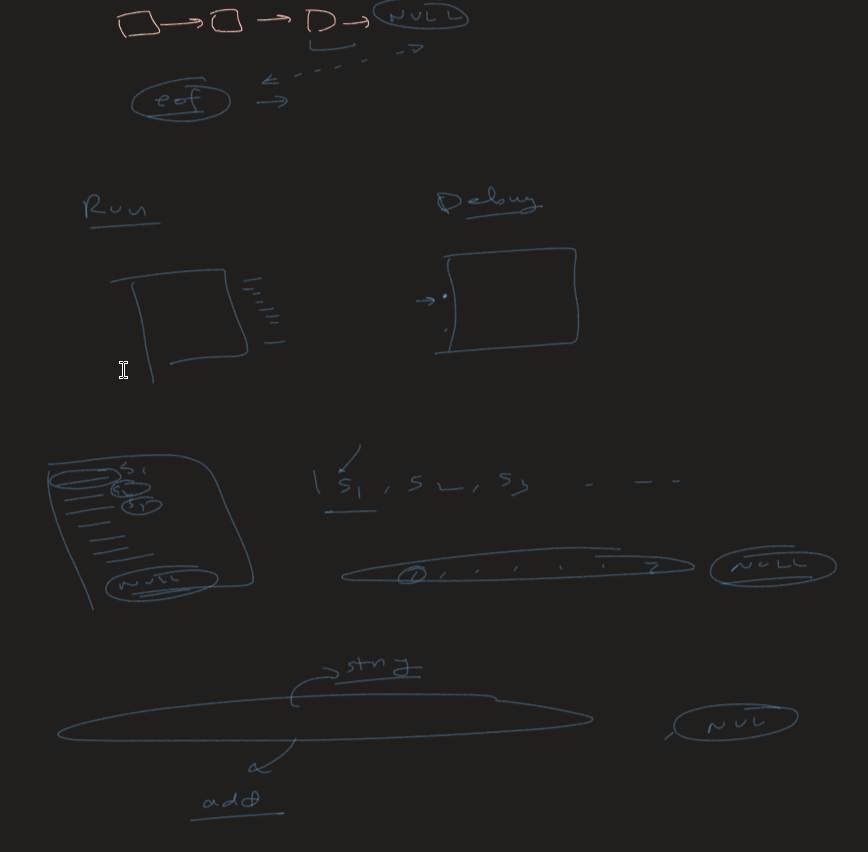 NULL
eof
Run Debug
S1
S2
S3
S1, S2, S3 - - -
NULL
NULL
string
NUL
add